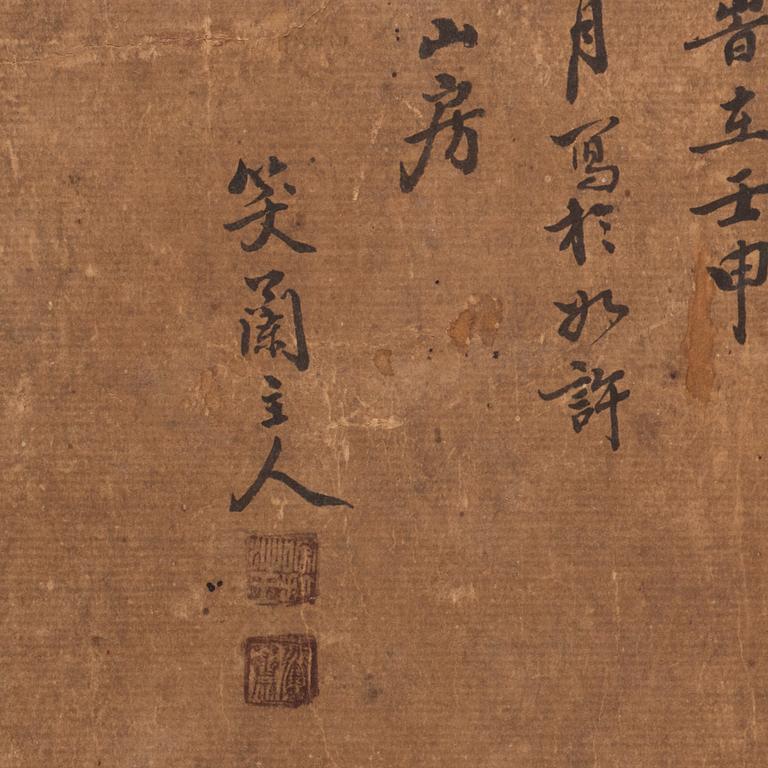 旹在壬申
月寫於如許
山房
笑蘭主人